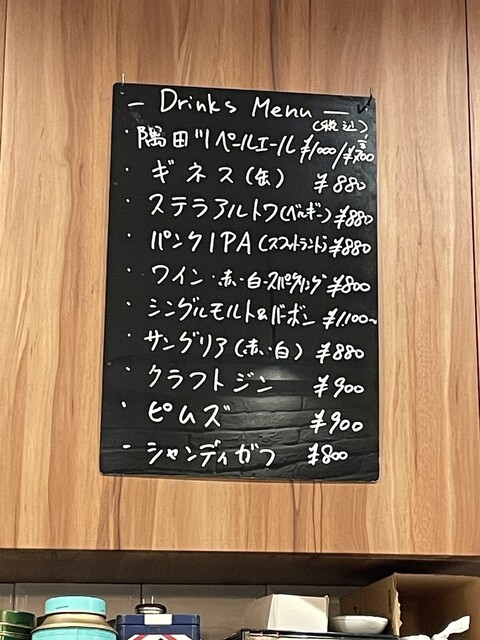 — Drinks Menu —
(税込)
・隅田川ペールエール ¥1000/
・ギネス(缶) ¥880
・ステラアルトワ(ベルギー) ¥880
・パンクIPA(スコットランド) ¥880
・ワイン・赤・白・スパークリング ¥800
・シングルモルト&バーボン ¥1,100~
・サングリア(赤・白) ¥880
・クラフトジン ¥900
・ピムズ ¥900
・シャンディガフ ¥800